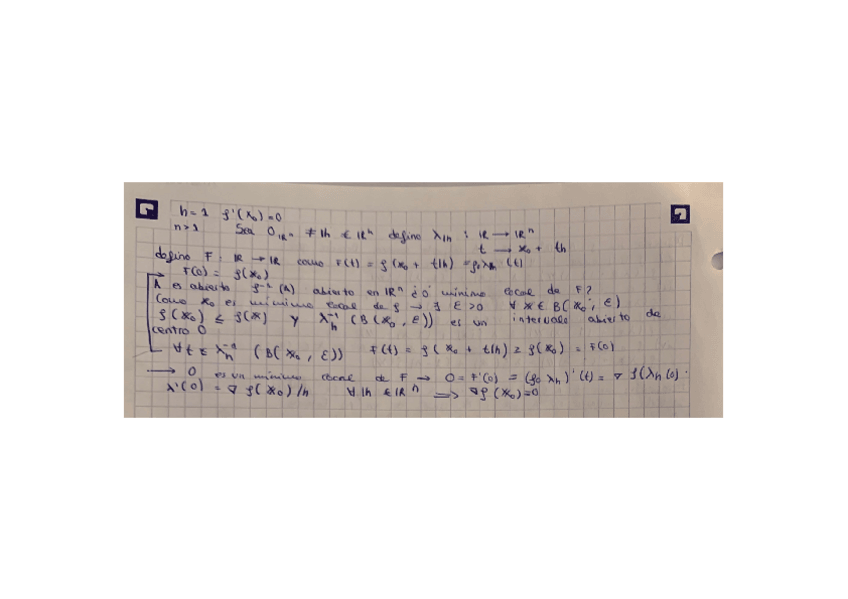 n=1 f'(x₀)=0
n>1 Sea 0_ℝⁿ ≠ lh ∈ ℝⁿ defino λ_lh : ℝ → ℝⁿ
t → x₀ + th
defino F : ℝ → ℝ como F(t) = f(x₀ + tlh) = f∘λ_h (t)
F(0) = f(x₀)
A es abierto f⁻¹(A) abierto en ℝⁿ ¿0 mínimo local de F?
Como x₀ es mínimo local de f → ∃ ε>0 ∀ x ∈ B(x₀, ε)
f(x₀) ≤ f(x) y λ_h⁻¹ (B(x₀, ε)) es un intervalo abierto de
centro 0
∀ t ∈ λ_h⁻¹ (B(x₀, ε)) F(t) = f(x₀ + tlh) ≥ f(x₀) = F(0)
→ 0 es un mínimo local de F → 0 = F'(0) = (f∘λ_h)'(t) = ∇ f(λ_h(0) ·
λ'(0) = ∇ f(x₀) lh ∀ lh ∈ ℝⁿ ⟹ ∇f(x₀)=0